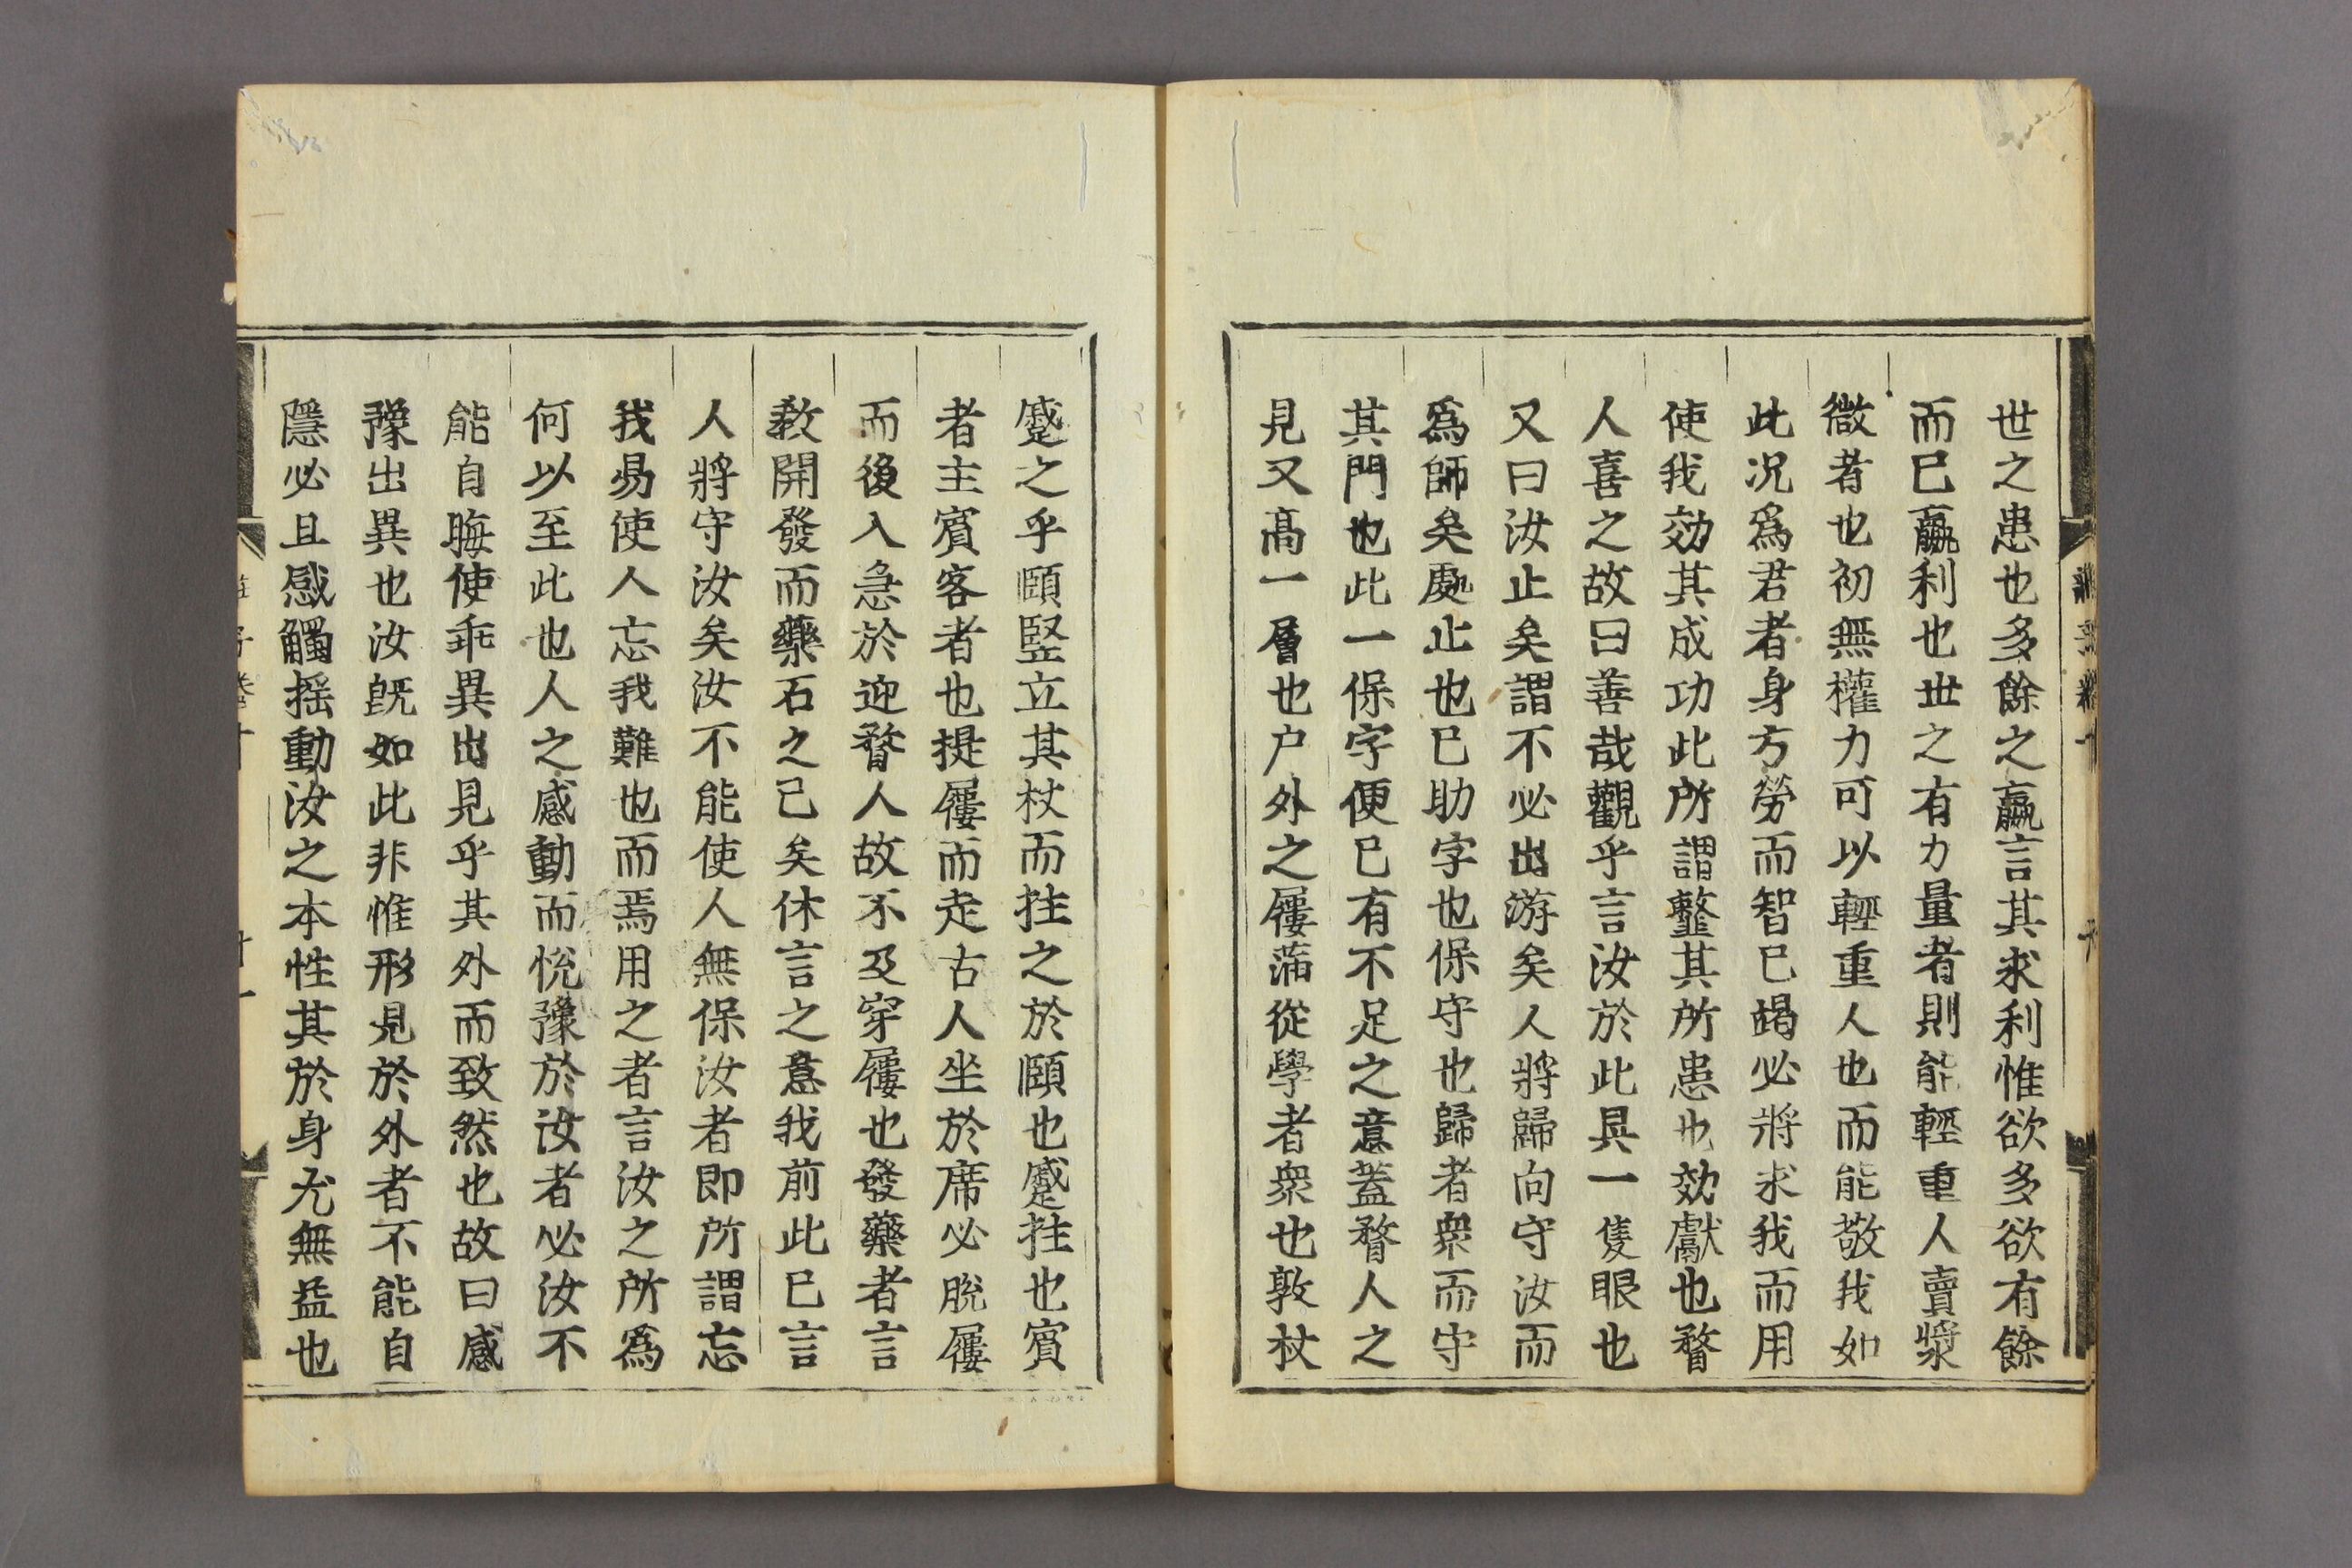 世之患也多餘之贏言其求利惟欲多欲有餘
而已贏利也世之有力量者則能輕重人賣漿
微者也初無權力可以輕重人也而能敬我如
此况爲君者身方勞而智已竭必將求我而用
使我効其成功此所謂䪠其所患也効獻也瞀
人喜之故曰善哉觀乎言汝於此具一隻眼也
又曰汝止矣謂不必出游矣人將歸向守汝而
爲師矣處止也已助字也保守也歸者衆而守
其門也此一保字便已有不足之意蓋瞀人之
見又高一層也户外之屨滿從學者衆也敦杖
蹙之乎頤竪立其杖而拄之於頤也蹙拄也賓
者主賓客者也提屨而走古人坐於席必脫屨
而後入急於迎瞀人故不及穿屨也發藥者言
教開發而藥石之已矣休言之意我前此已言
人將守汝矣汝不能使人無保汝者即所謂忘
我易使人忘我難也而焉用之者言汝之所爲
何以至此也人之感動而悅豫於汝者必汝不
能自晦使乖異出見乎其外而致然也故曰感
豫出異也汝旣如此非惟形見於外者不能自
隱必且感觸揺動汝之本性其於身尤無益也